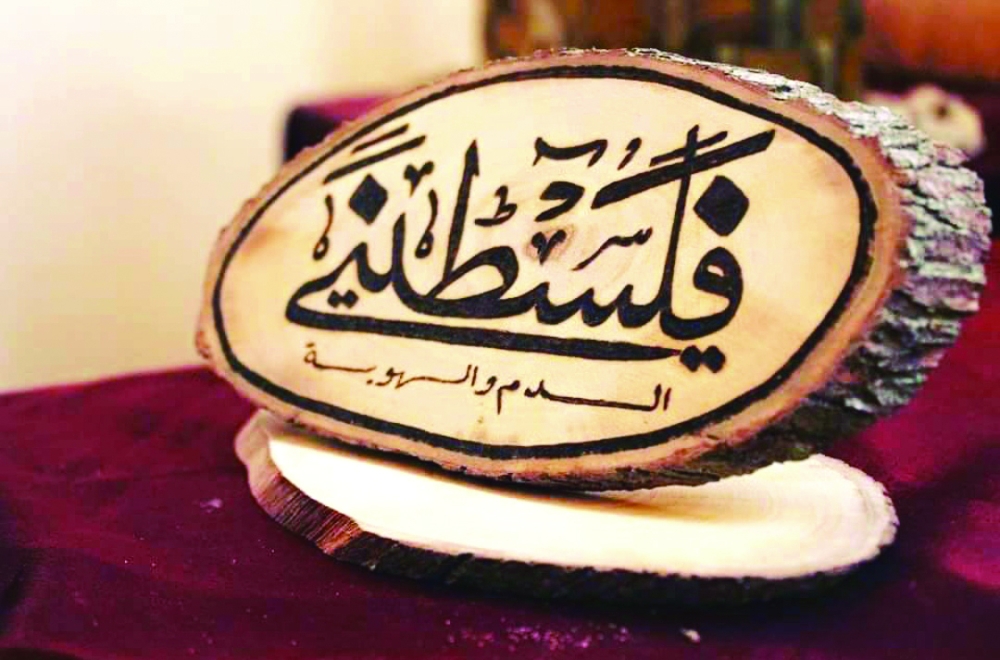 فلسطيني
الدم والهوية